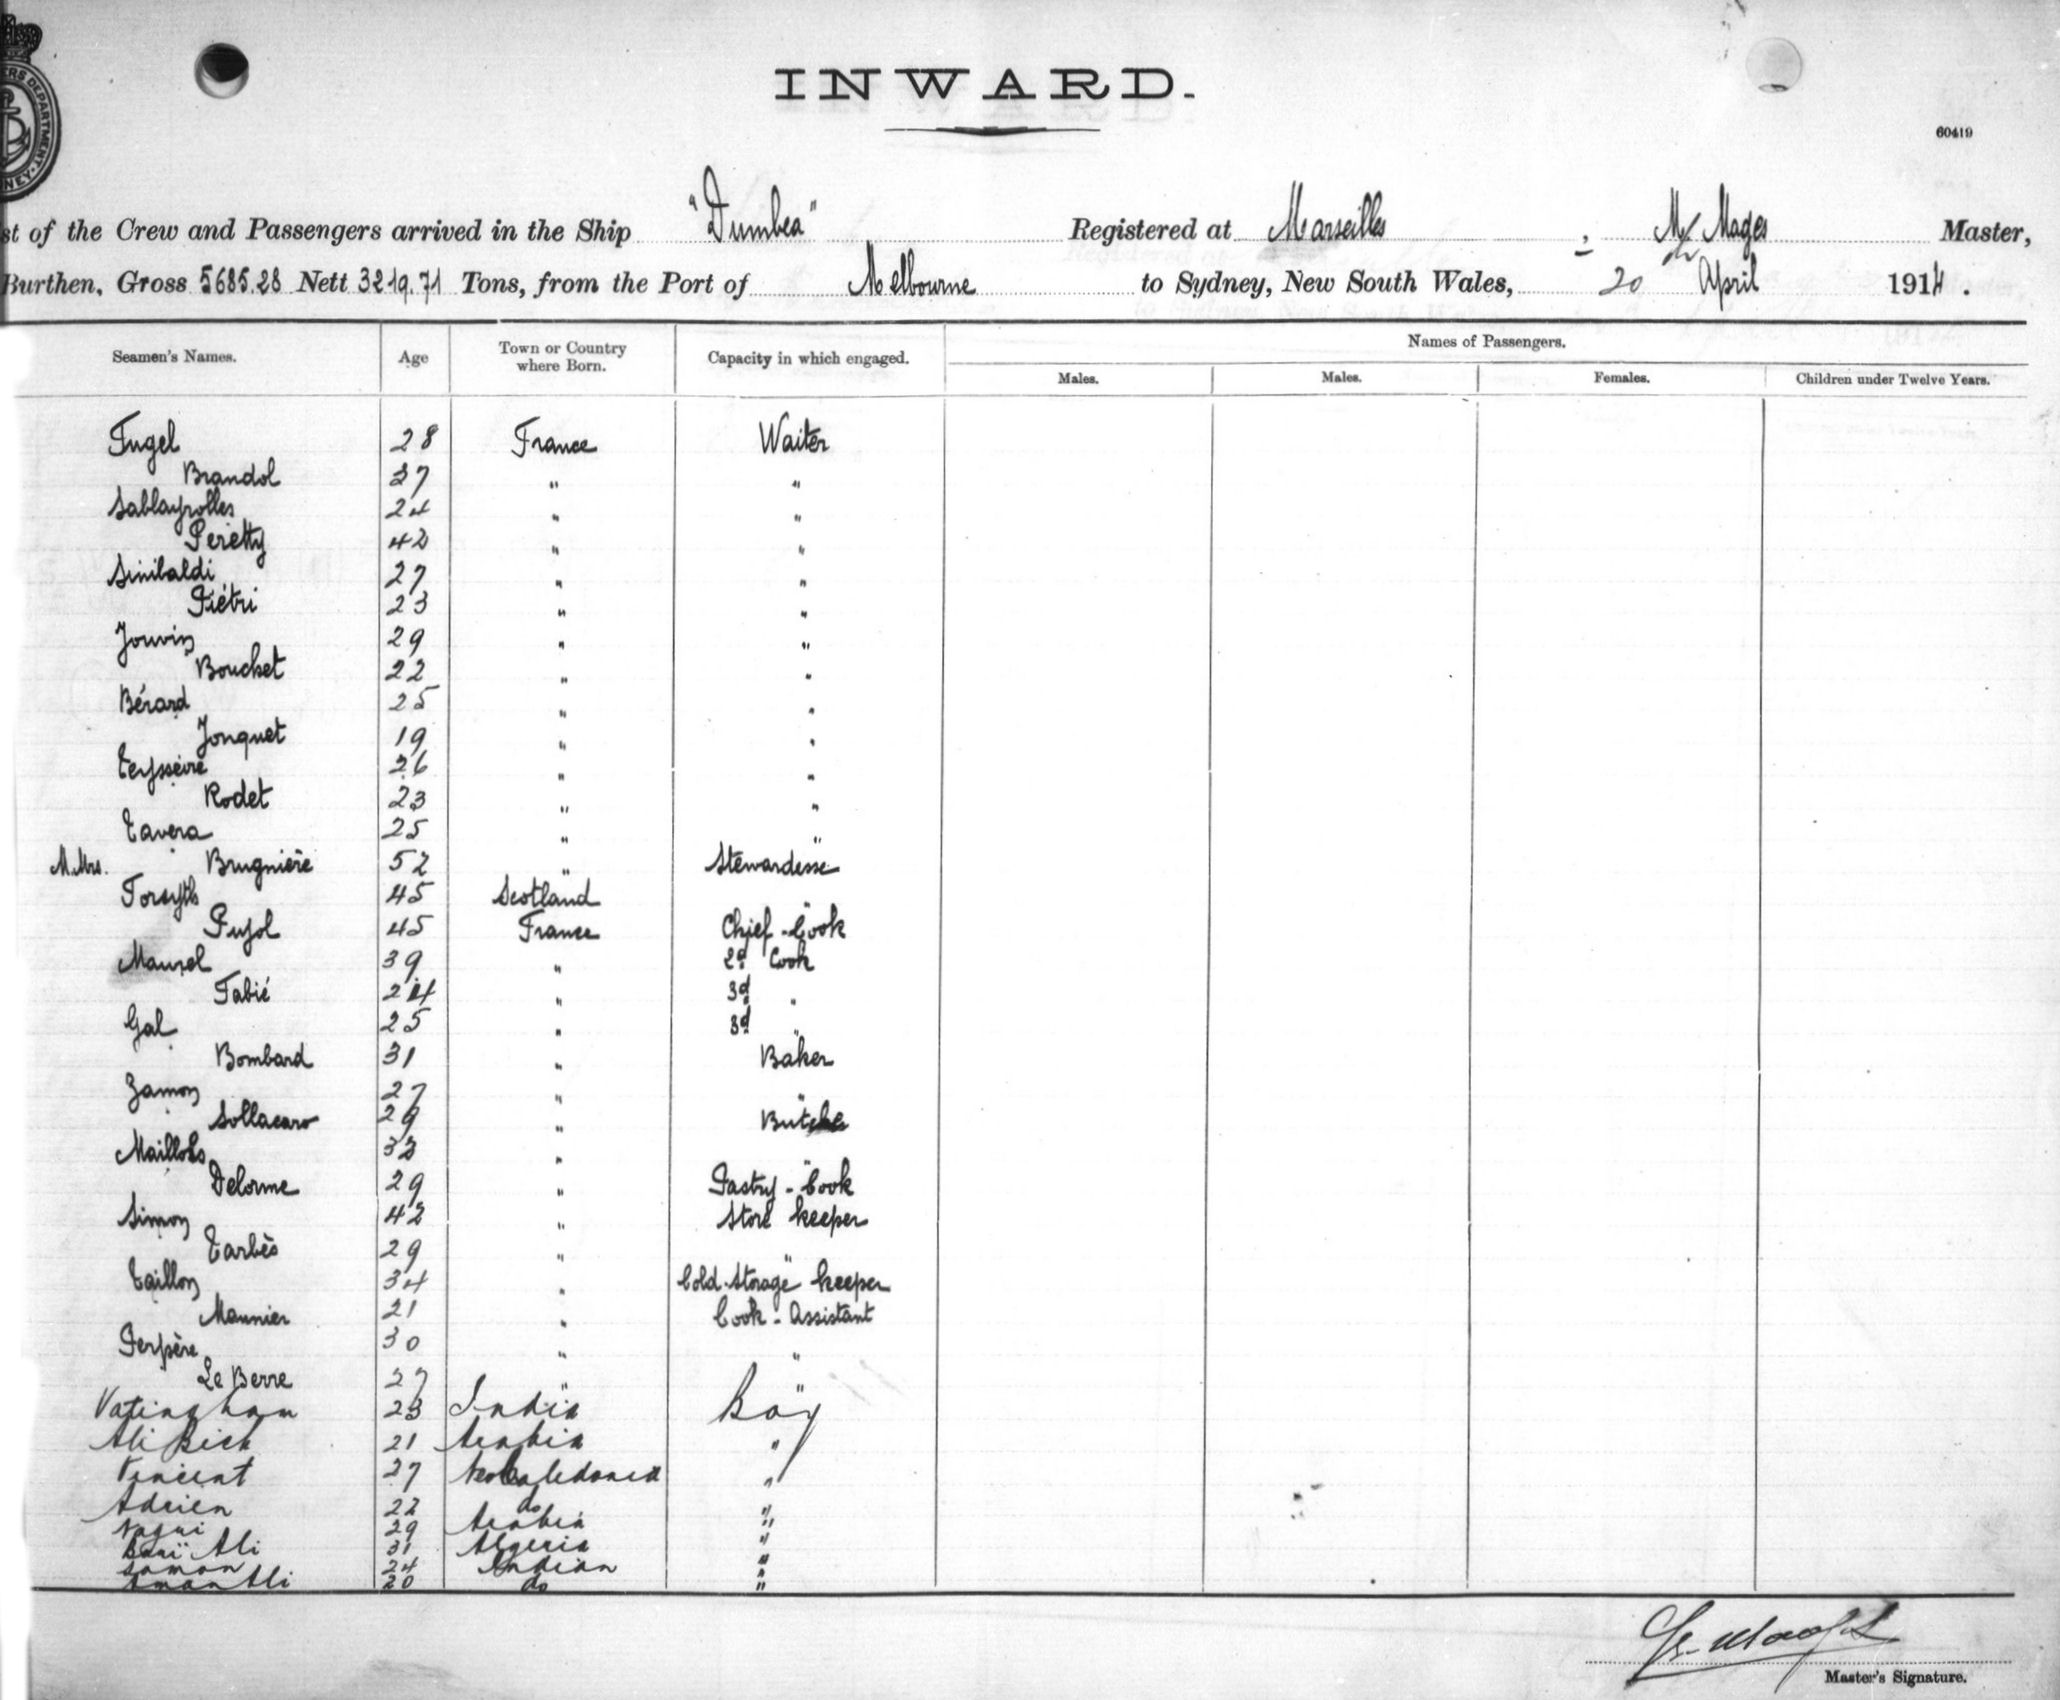 INWARD.
60419
ERS DEPARTMENT.
NEY.
st of the Crew and Passengers arrived in the Ship "Dumbea" Registered at Marseilles, Mr Mages Master,
Burthen, Gross 5685.28 Nett 3219.71 Tons, from the Port of Melbourne to Sydney, New South Wales, 20 April 1914.
Seamen's Names. Age Town or Country where Born. Capacity in which engaged. Names of Passengers.
Males. Males. Females. Children under Twelve Years.
28 France Waiter
Brandol 37 " "
Sablayrolles 24 " "
Peretty 42 " "
Sinibaldi 27 " "
Piétri 23 " "
Jouvin 29 " "
Bouchet 22 " "
Bérard 25 " "
Jonquet 19 " "
Teysseire 26 " "
Rodet 23 " "
Tavera 25 " "
M.Mrs. Brugnière 52 " Stewardesse
Forsyth 45 Scotland "
Pujol 45 France Chief-Cook
Maurel 39 " 2d Cook
Fabié 24 " 3d "
Gal 25 " 3d "
Bombard 31 " Baker
Zamon 27 " "
Sollacaro 29 " Butcher
33 " "
Delorme 29 " Pastry-Cook
Simon 42 " Store keeper
Tarbès 29 " "
Taillon 34 " Cold-Storage keeper
Maunier 21 " Cook-Assistant
Perpère 30 " "
Le Berre 27 " "
23 India Boy
21 Arabia "
Vincent 27 "
Adrien 22 do "
29 Arabia "
Ali 31 Algeria "
24 Indian "
Ali 20 do "
Master's Signature.